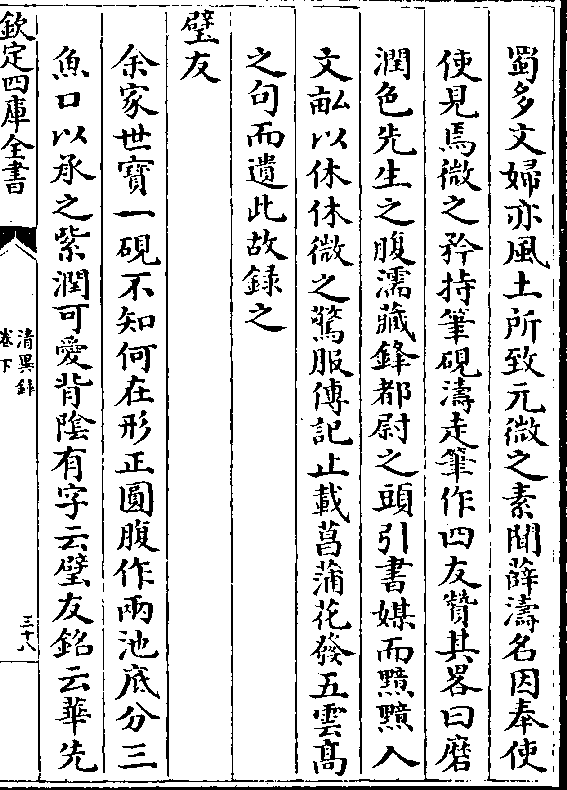 蜀多文婦亦風土所致元微之素聞薛濤名因奉使
使見焉微之矜持筆硯濤走筆作四友贊其畧曰磨
潤色先生之腹濡藏鋒都尉之頭引書媒而黯黯入
文畝以休休微之驚服傳記止載菖蒲花發五雲髙
之句而遺此故録之
璧友
余家世寶一硯不知何在形正圓腹作兩池底分三
魚口以承之紫潤可愛背隂有字云璧友銘云華先
欽定四庫全書
清異録
卷下
三十八